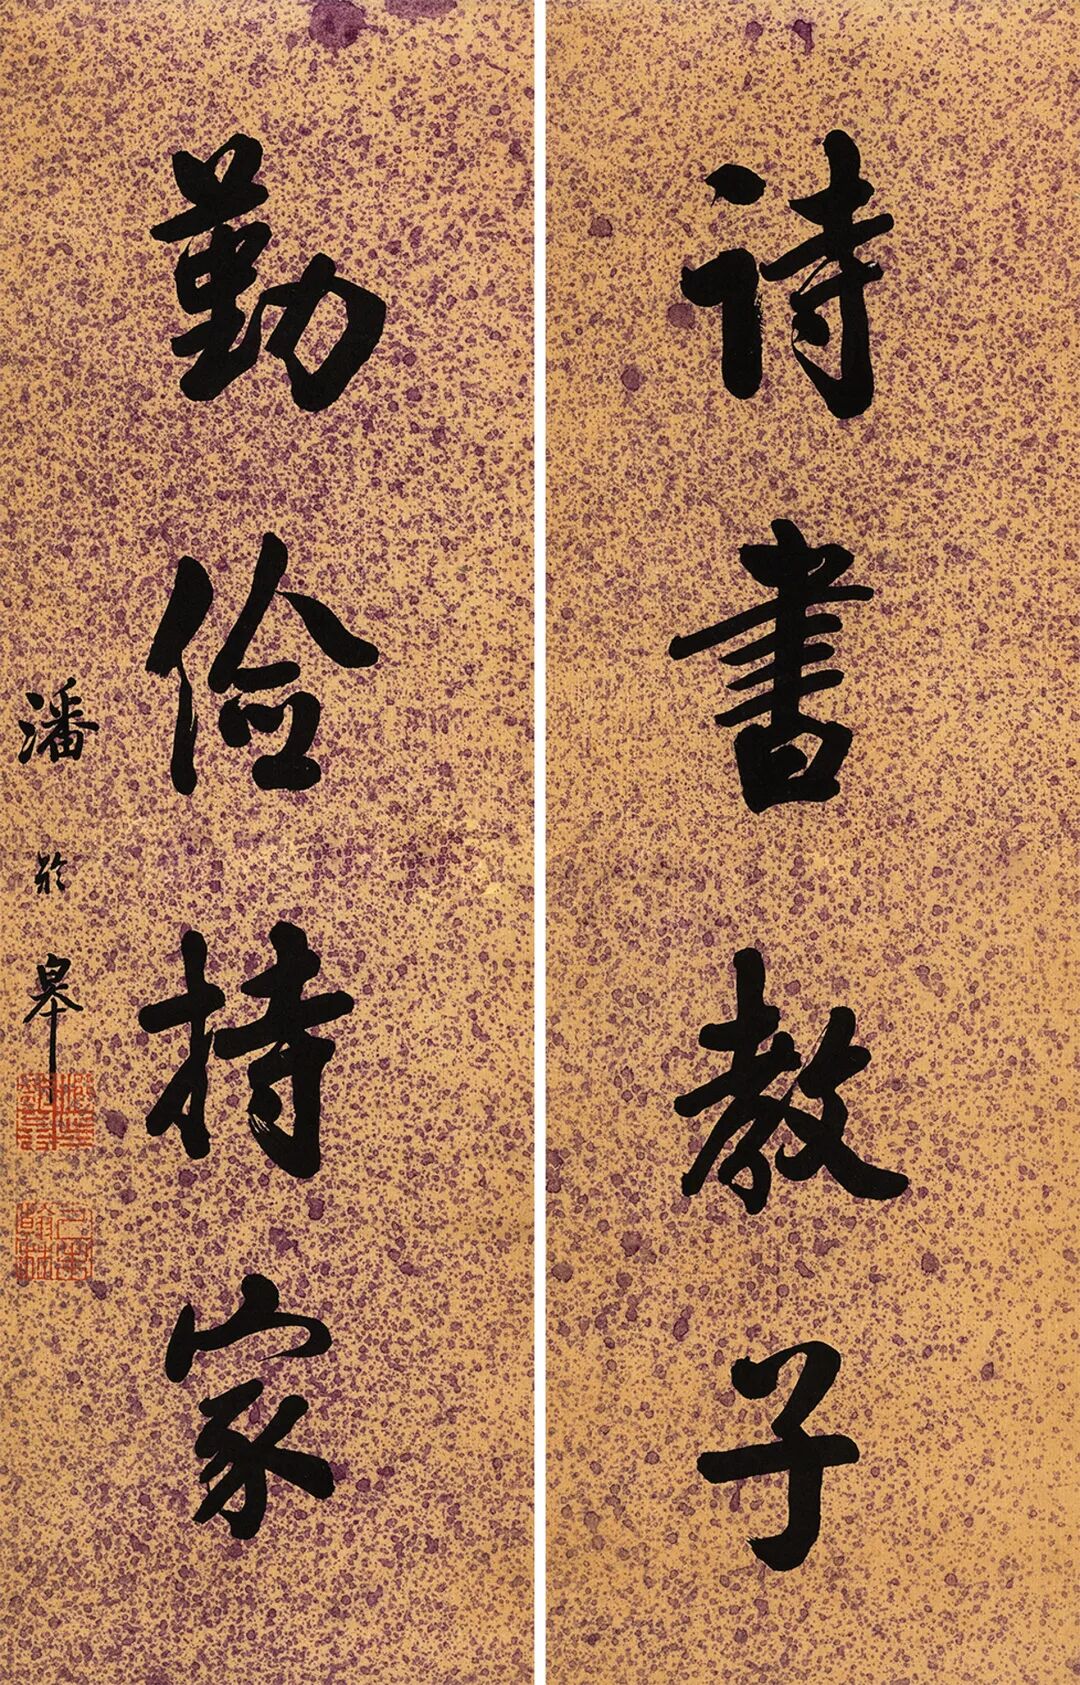 詩書教子
勤儉持家
潘齡皋